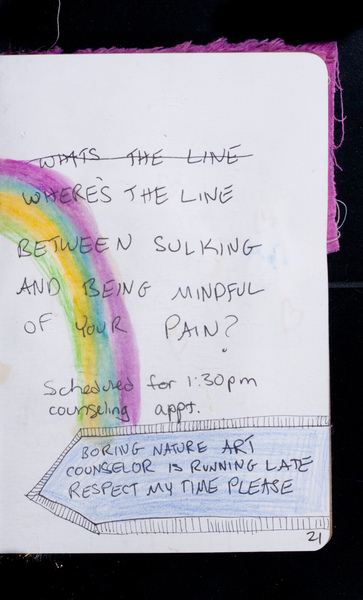 WHATS THE LINE
WHERE'S THE LINE
BETWEEN SULKING
AND BEING MINDFUL
OF YOUR PAIN?
Scheduled for 1:30pm
counseling appt.
BORING NATURE ART
COUNSELOR IS RUNNING LATE
RESPECT MY TIME PLEASE
21